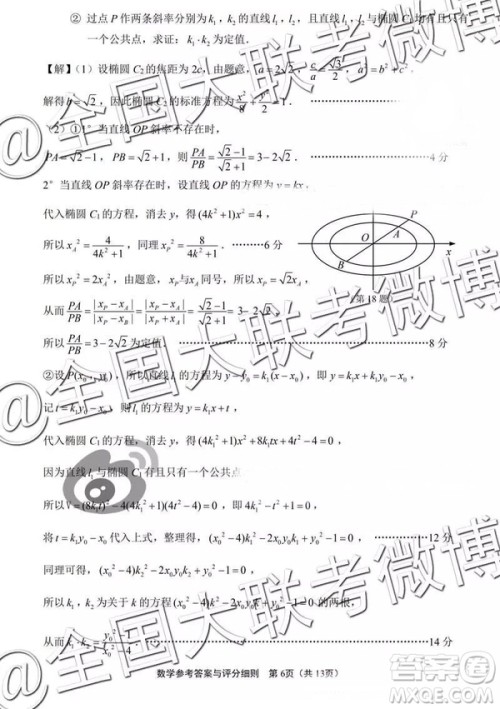 ② 过点 P 作两条斜率分别为 k₁, k₂ 的直线 l₁, l₂，且直线 l₁, l₂ 与椭圆 C₁ 均有且只有
一个公共点，求证：k₁·k₂ 为定值．
【解】（1）设椭圆 C₂ 的焦距为 2c，由题意，a=2√2，c/a=√3/2，a²=b²+c²，
解得 b=√2，因此椭圆 C₂ 的标准方程为 x²/8+y²/2=1．
（2）①1° 当直线 OP 斜率不存在时，
PA=√2-1，PB=√2+1，则 PA/PB=(√2-1)/(√2+1)=3-2√2．4 分
2° 当直线 OP 斜率存在时，设直线 OP 的方程为 y=kx，
代入椭圆 C₁ 的方程，消去 y，得 (4k²+1)x²=4，
所以 x_A²=4/(4k²+1)，同理 x_P²=8/(4k²+1)．6分
所以 x_P²=2x_A²，由题意，x_P与x_A 同号，所以 x_P=√2x_A，
从而 PA/PB=|x_P-x_A|/|x_P-x_B|=|x_P-x_A|/|x_P+x_A|=(√2-1)/(√2+1)=3-2√2，
所以 PA/PB=3-2√2 为定值．8 分
P
A
O
B
x
（第 18 题）
②设 P(x₀, y₀)，所以直线 l₁ 的方程为 y-y₀=k₁(x-x₀)，即 y=k₁x-k₁x₀+y₀，
记 t=-k₁x₀+y₀，则 l₁ 的方程为 y=k₁x+t，
代入椭圆 C₁ 的方程，消去 y，得 (4k₁²+1)x²+8k₁tx+4t²-4=0，
因为直线 l₁ 与椭圆 C₁ 有且只有一个公共点，
所以 V=(8k₁t)²-4(4k₁²+1)(4t²-4)=0，即 4k₁²-t²+1=0，
将 t=-k₁x₀+y₀ 代入上式，整理得，(x₀²-4)k₁²-2x₀y₀k₁+y₀²-1=0，12 分
同理可得，(x₀²-4)k₂²-2x₀y₀k₂+y₀²-1=0，
所以 k₁, k₂ 为关于 k 的方程 (x₀²-4)k²-2x₀y₀k+y₀²-1=0 的两根，
从而 k₁·k₂=(y₀²-1)/(x₀²-4)．14 分
数学参考答案与评分细则 第 6页（共 13页）
@全国大联考微博
@全国大联考微博